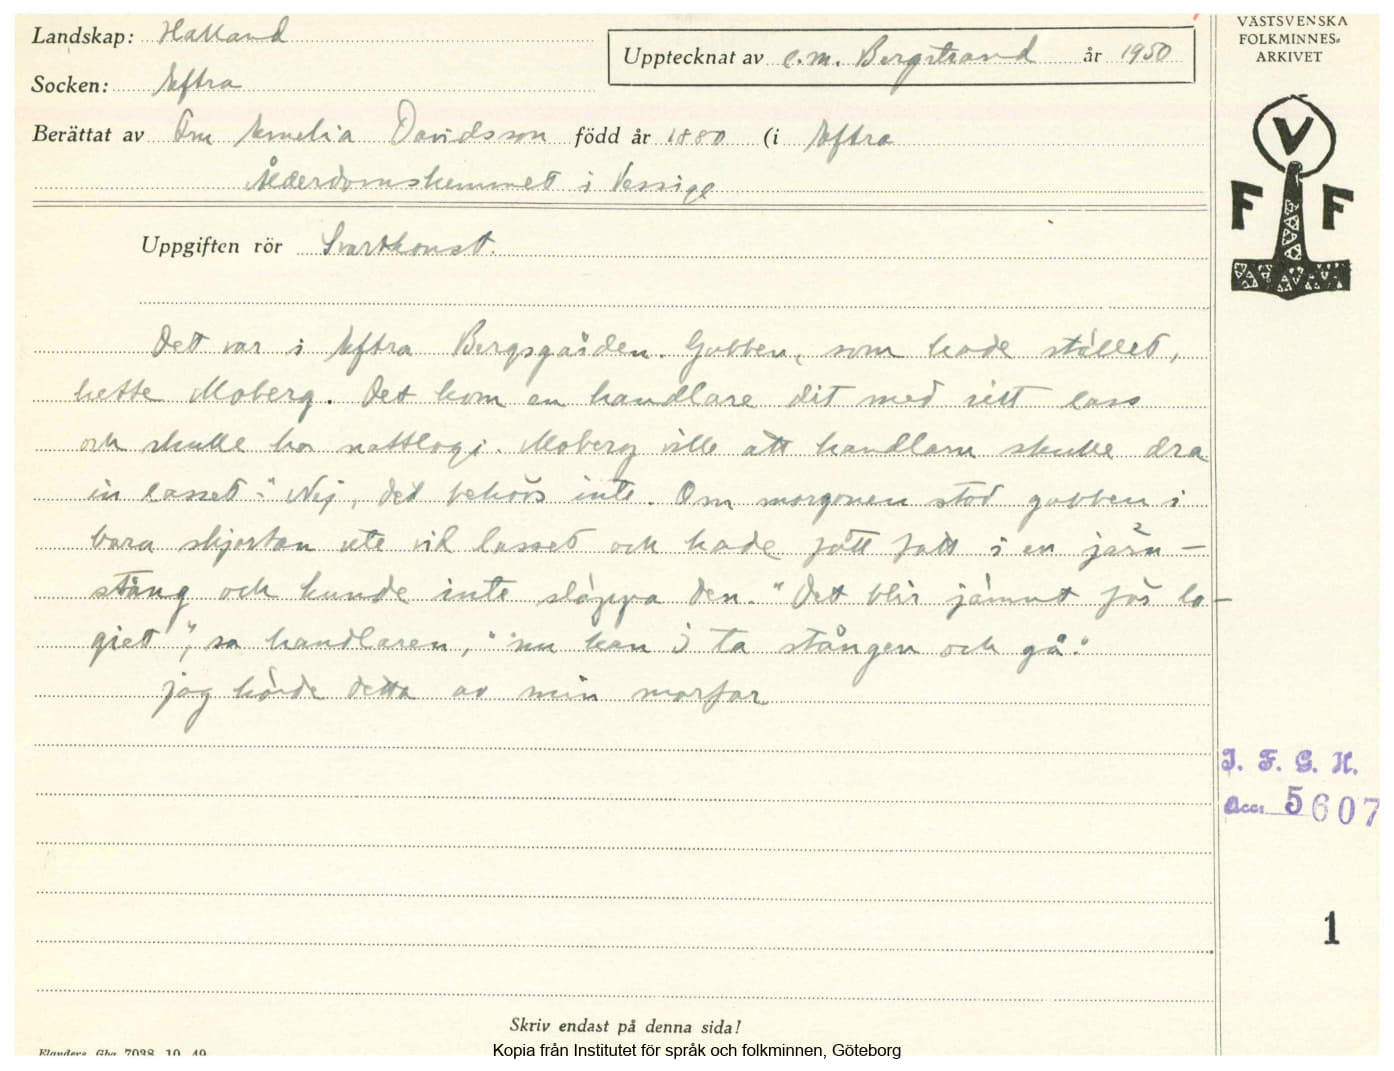 Landskap: Halland
Upptecknat av C.M. Bergstrand år 1950
Socken: Eftra
Berättat av Fru Emelia Davidsson född år 1880 (i Eftra
Ålderdomshemmet i Vessige
Uppgiften rör Svartkonst.
Det var i Eftra Bergsgården. Gubben, som hade stället,
hette Moberg. Det kom en handlare dit med sitt lass
och skulle ha nattlogi. Moberg ville att handlarn skulle dra
in lasset. "Nej, det behövs inte. Om morgonen stod gubben i
bara skjortan ute vid lasset och hade fått fatt i en järn-
stång och kunde inte släppa den. "Det blir jämnt för lo-
giet", sa handlaren, "nu kan I ta stången och gå."
jag hörde detta av min morfar
VÄSTSVENSKA
FOLKMINNES-
ARKIVET
V
F F
I. F. G. H.
Acc: 5607
1
Skriv endast på denna sida!
Elanders, Gbg 7038 10 49
Kopia från Institutet för språk och folkminnen, Göteborg